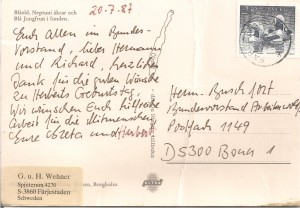 Böxlid, Neptuni åkrar och
Blå Jungfrun i fonden.
20.7.87
Euch Allen im Bundes-
vorstand, lieber Hermann
und Richard, herzlichen
Dank für die guten Wünsche
zu Herberts Geburtstag.
Wir wünschen Euch hilfreiche
Arbeit für die Mitmenschen
Eure Greta und Herbert
G. u. H. Wehner
Spjutterum 4230
S-3860 Färjestaden
Schweden
Borgholm
Herrn Buschfort
Bundesvorstand Arbeiterwohlf.
Postfach 1149
D 5300 Bonn 1